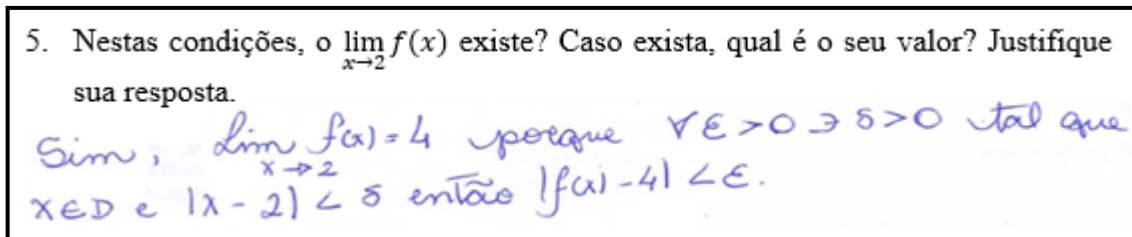 5. Nestas condições, o lim f(x) existe? Caso exista, qual é o seu valor? Justifique
x→2
sua resposta.
Sim, lim f(x) = 4 porque ∀ε>0 ∃ δ>0 tal que
x→2
x∈D e |x - 2| < δ então |f(x) - 4| < ε.